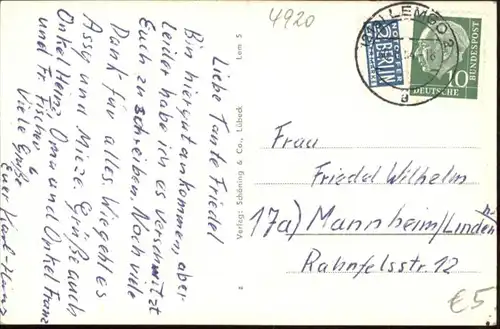 4920
Liebe Tante Friedel
Bin hier gut ankommen, aber
Leider habe ich es verschwitzt
Euch zu schreiben. Noch viele
Dank für alles. Wie geht es
Assy und Mieze. Grüße auch
Onkel Heinz, Oma und Onkel Franz
und Fr. Fischer
Viele Grüße
Euer Karl-Heinz
Lem 5
Verlag: Schöning & Co., Lübeck
LEMGO 2
a
NOTOPFER
2 BERLIN
STEUERMARKE
10
DEUTSCHE
BUNDESPOST
Frau
Friedel Wilhelm
17a) Mannheim/Linden
Rahnfelsstr. 12
€5